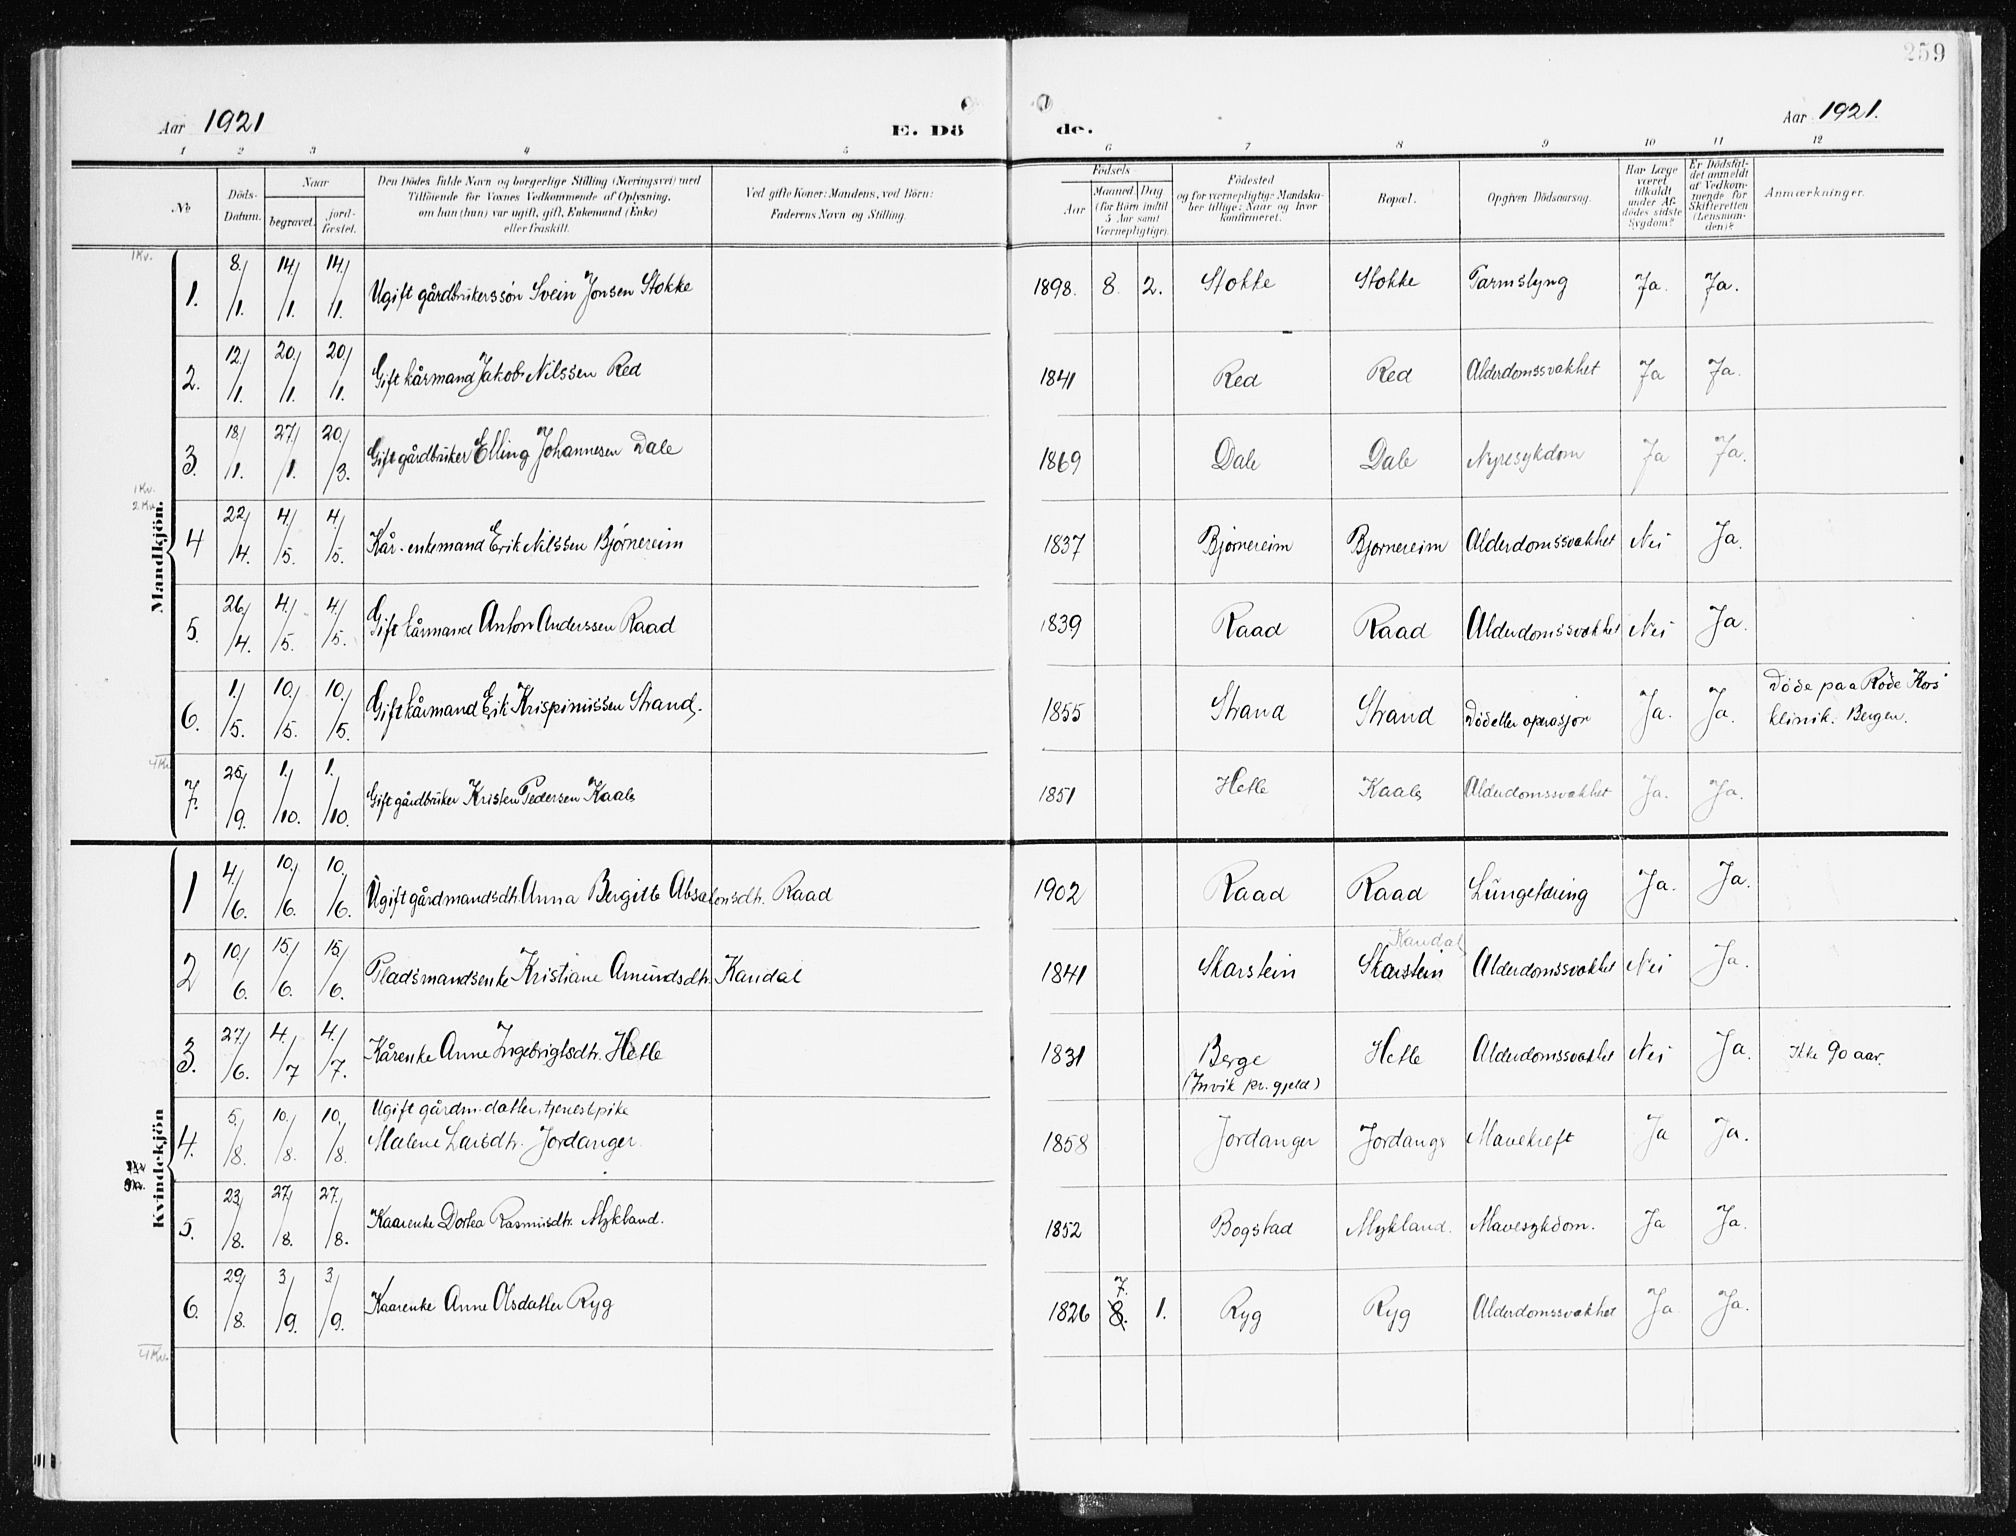 259
Aar 1921
E. Dö
de.
Aar 1921.
1 2 3 4 5 6 7 8 9 10 11 12
No
Döds-
Datum.
Naar
begravet.
jord-
fæstet.
Den Dödes fulde Navn og borgerlige Stilling (Næringsvei) med
Tilföiende for Voxnes Vedkommende af Oplysning,
om han (hun) var ugift, gift, Enkemand (Enke)
eller fraskilt.
Ved gifte Koner: Mandens, ved Börn:
Faderens Navn og Stilling.
Födsels-
Aar
Maaned
Dag
(for Börn indtil
5 Aar samt
Værnepligtige).
Födested
og for værnepligtig Mandska-
ber tillige: Naar og hvor
konfirmeret.
Bopæl.
Opgiven Dödsaarsag.
Har Læge
været
tilkaldt
under Af-
dödes sidste
Sygdom?
Er Dödsfal-
det anmeldt
af Vedkom-
mende for
Skifteretten
(Lensman-
den)?
Anmærkninger.
Mandkjön.
1 Kv.
1. 8/1. 14/1. 14/1. Ugift gårdbrukerssøn Svein Jonsen Stokke 1898. 8. 2. Stokke Stokke Tarmslyng Ja. Ja.
2. 12/1. 20/1. 20/1. Gift kårmand Jakob Nilssen Red 1841 Red Red Alderdomssvakhet Ja Ja.
3. 18/1. 27/1. 20/3. Gift gårdbruker Elling Johannesen Dale 1869 Dale Dale Nyresykdom Ja Ja.
1 Kv.
2 Kv.
4 22/4. 4/5. 4/5. Kår-enkemand Erik Nilssen Bjørnereim 1837 Bjørnereim Bjørnereim Alderdomssvakhet Nei Ja.
5. 26/4. 4/5. 4/5. Gift kårmand Anton Anderssen Raad 1839 Raad Raad Alderdomssvakhet Nei Ja.
6. 1/5. 10/5. 10/5. Gift kårmand Erik Krispinussen Strand. 1855 Strand Strand Død efter operasjon Ja. Ja. Døde paa Røde Kors'
klinik. Bergen.
4 Kv
7. 25/9. 1/10. 1/10. Gift gårdbruker Kristen Pedersen Kaale 1851 Hetle Kaale Alderdomssvakhet Ja. Ja.
Kvindekjön
1 4/6. 10/6. 10/6. Ugift gårdmandsdtr. Anna Bergitte Absalonsdtr. Raad 1902 Raad Raad Lungetæring Ja. Ja.
Kandal
2 10/6. 15/6. 15/6. Pladsmandsenke Kristiane Amundsdtr. Kandal 1841 Skarstein Skarstein Alderdomssvakhet Nei Ja.
3. 27/6. 4/7 4/7. Kårenke Anne Ingebrigtsdtr. Hetle 1831 Berge Hetle Alderdomssvakhet Nei Ja. Ikke 90 aar.
(Invik pr. gjeld)
Ugift gårdm.datter, tjenestpike
4. 5/8. 10/8. 10/8. Malene Larsdtr. Jordanger. 1858 Jordanger Jordangr Mavekreft Ja Ja.
5. 23/8. 27/8. 27/8. Kaarenke Dortea Rasmusdtr. Mykland. 1852 Bogstad Mykland. Mavesykdom. Ja Ja.
7.
6. 29/8. 3/9. 3/9. Kaarenke Anne Olsdatter Ryg 1826 8. 1. Ryg Ryg Alderdomssvakhet Ja Ja.
4 Kv.